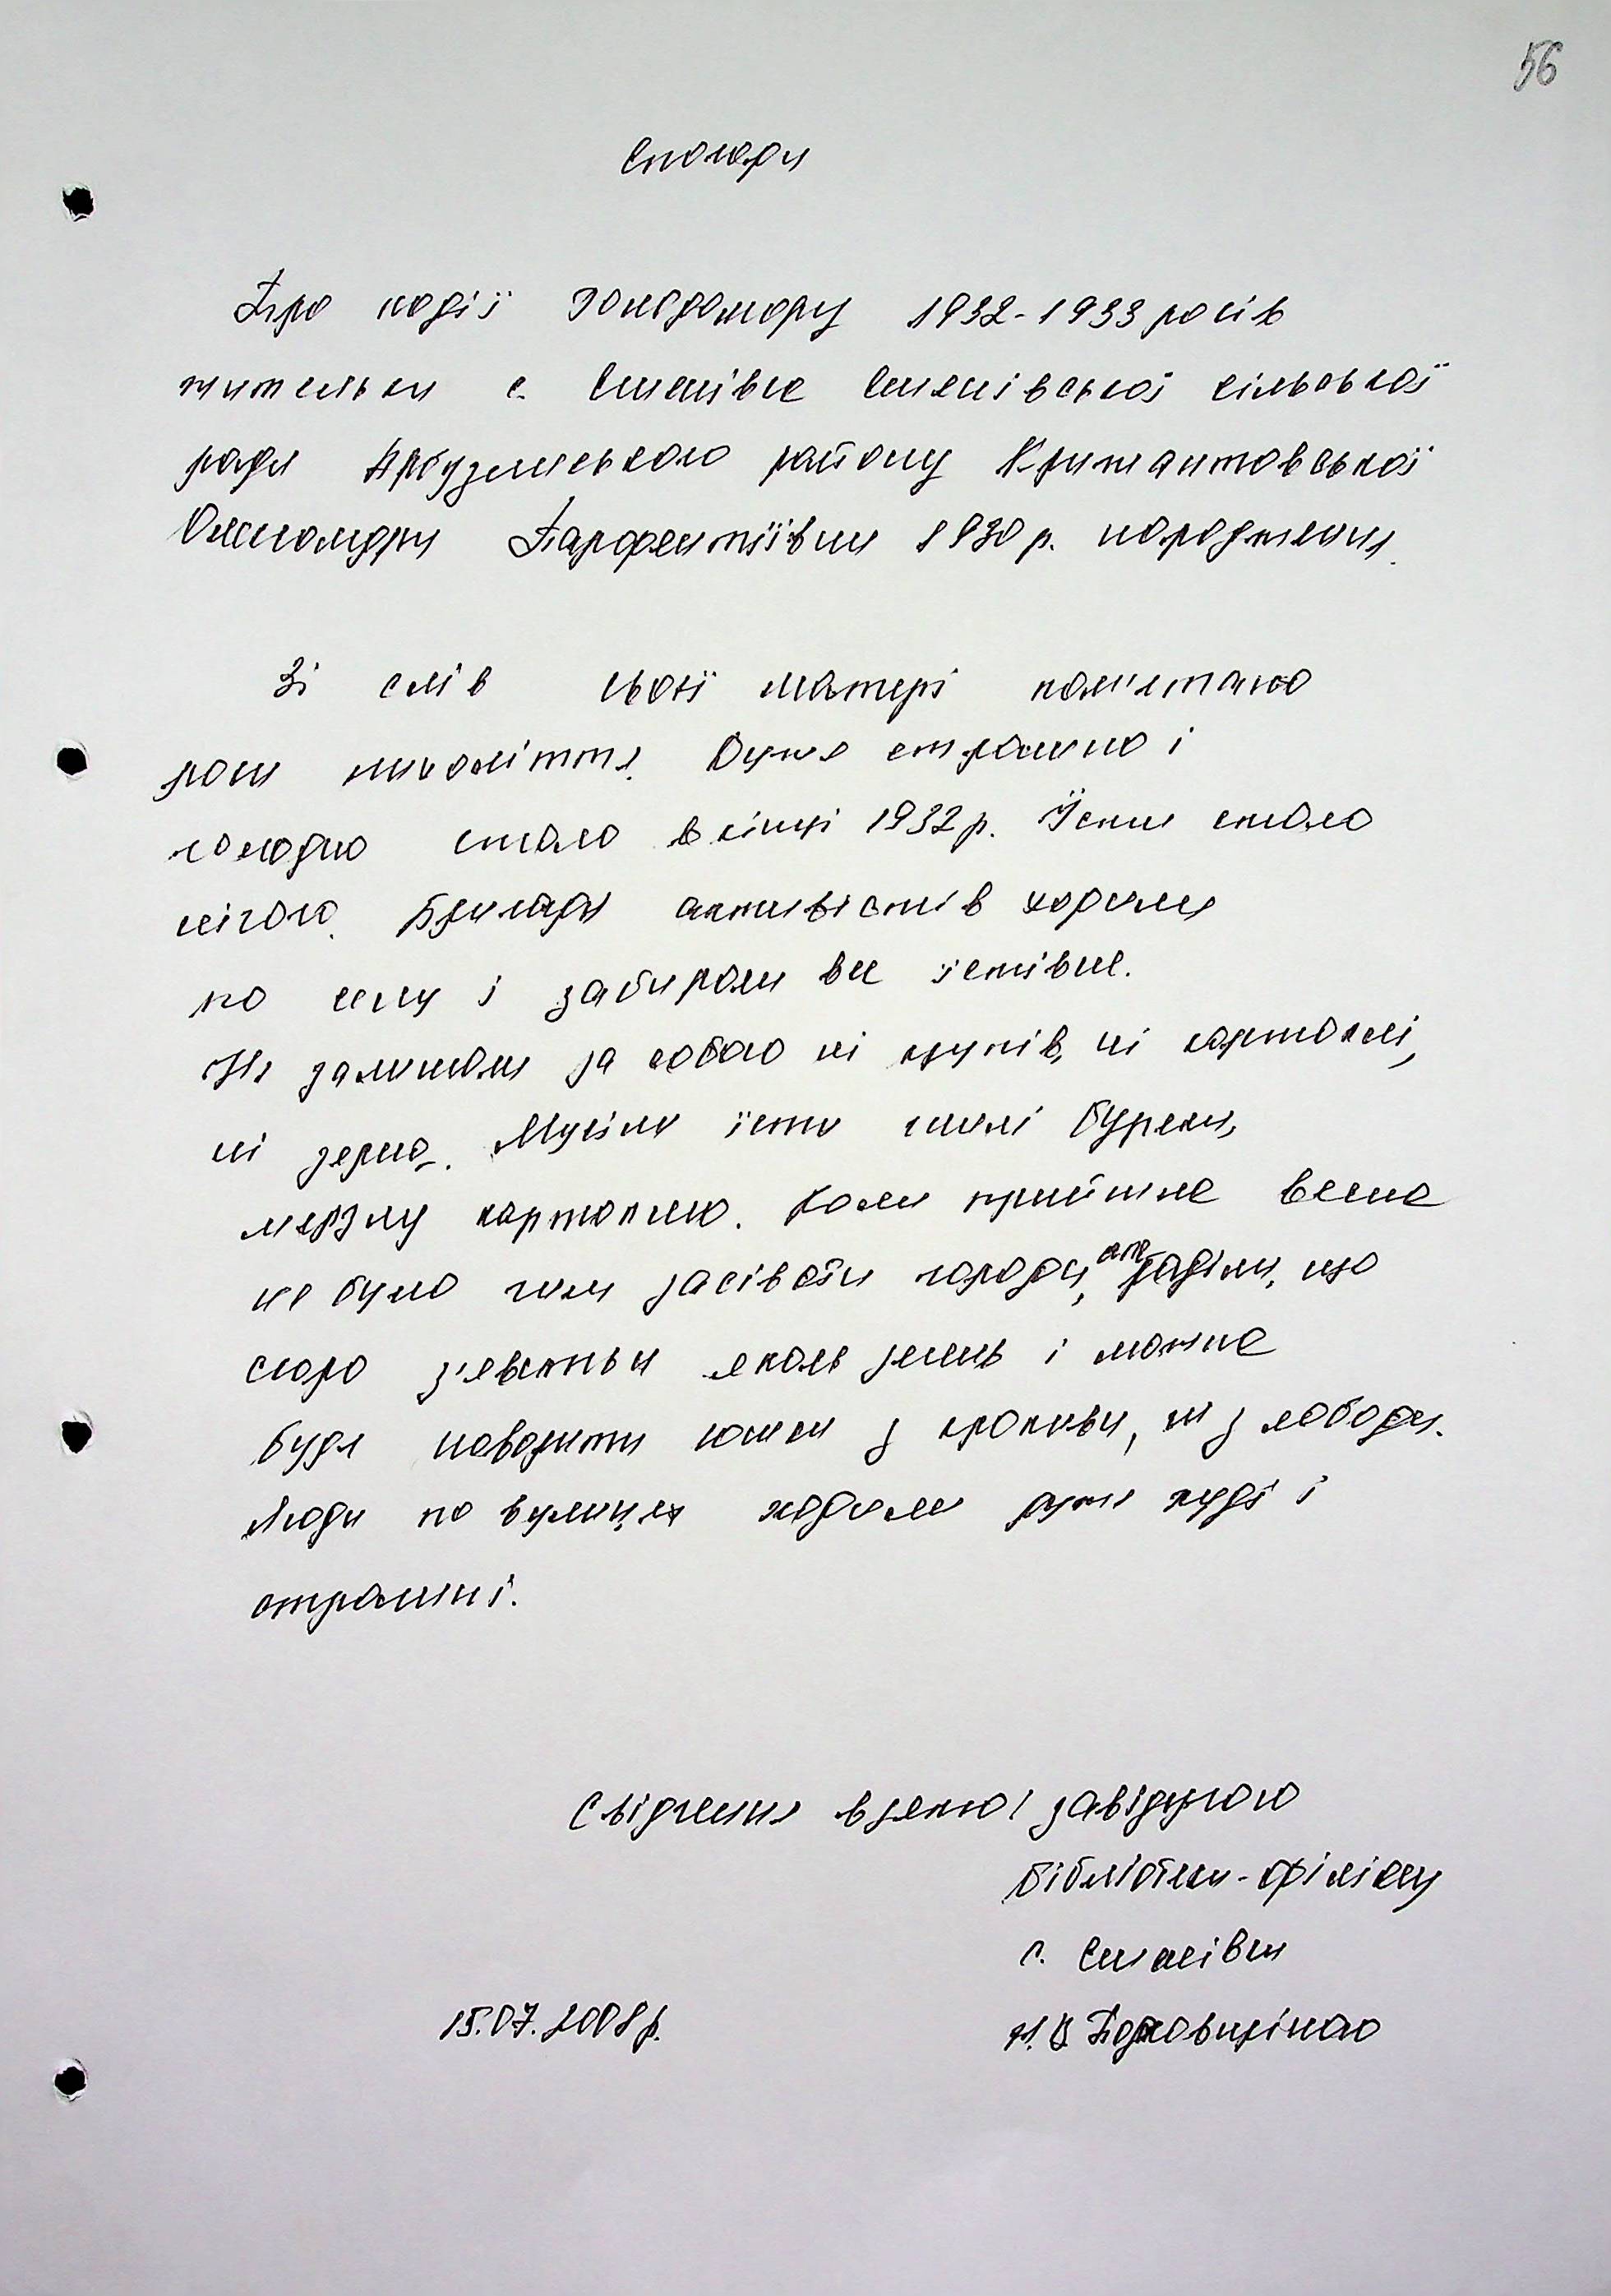 56
Спогади
Про події Голодомору 1932-1933 років
жительки с. Семенівка Семенівської сільської
ради Арбузинського району Крижантовської
Олександри Парфентіївни 1930 р. народження.
Зі слів своєї матері пам'ятаю
роки лихоліття. Дуже страшно і
голодно стало в кінці 1932 р. Їсти стало
нічого. Бригади активістів ходили
по селу і забирали все їстівне.
Не залишали за собою ні крупів, ні картоплі,
ні зерна. Мусіли їсти гнилі буряки,
мерзлу картоплю. Коли прийшла весна
не було чим засівати городи, але раділи, що
скоро з'явиться якась зелень і можна
буде наварити юшки з кропиви, чи з лободи.
Люди по вулицях ходили дуже худі і
страшні.
Свідчення взято завідуючою
бібліотеки-філіалу
с. Семенівки
15.07.2008 р.